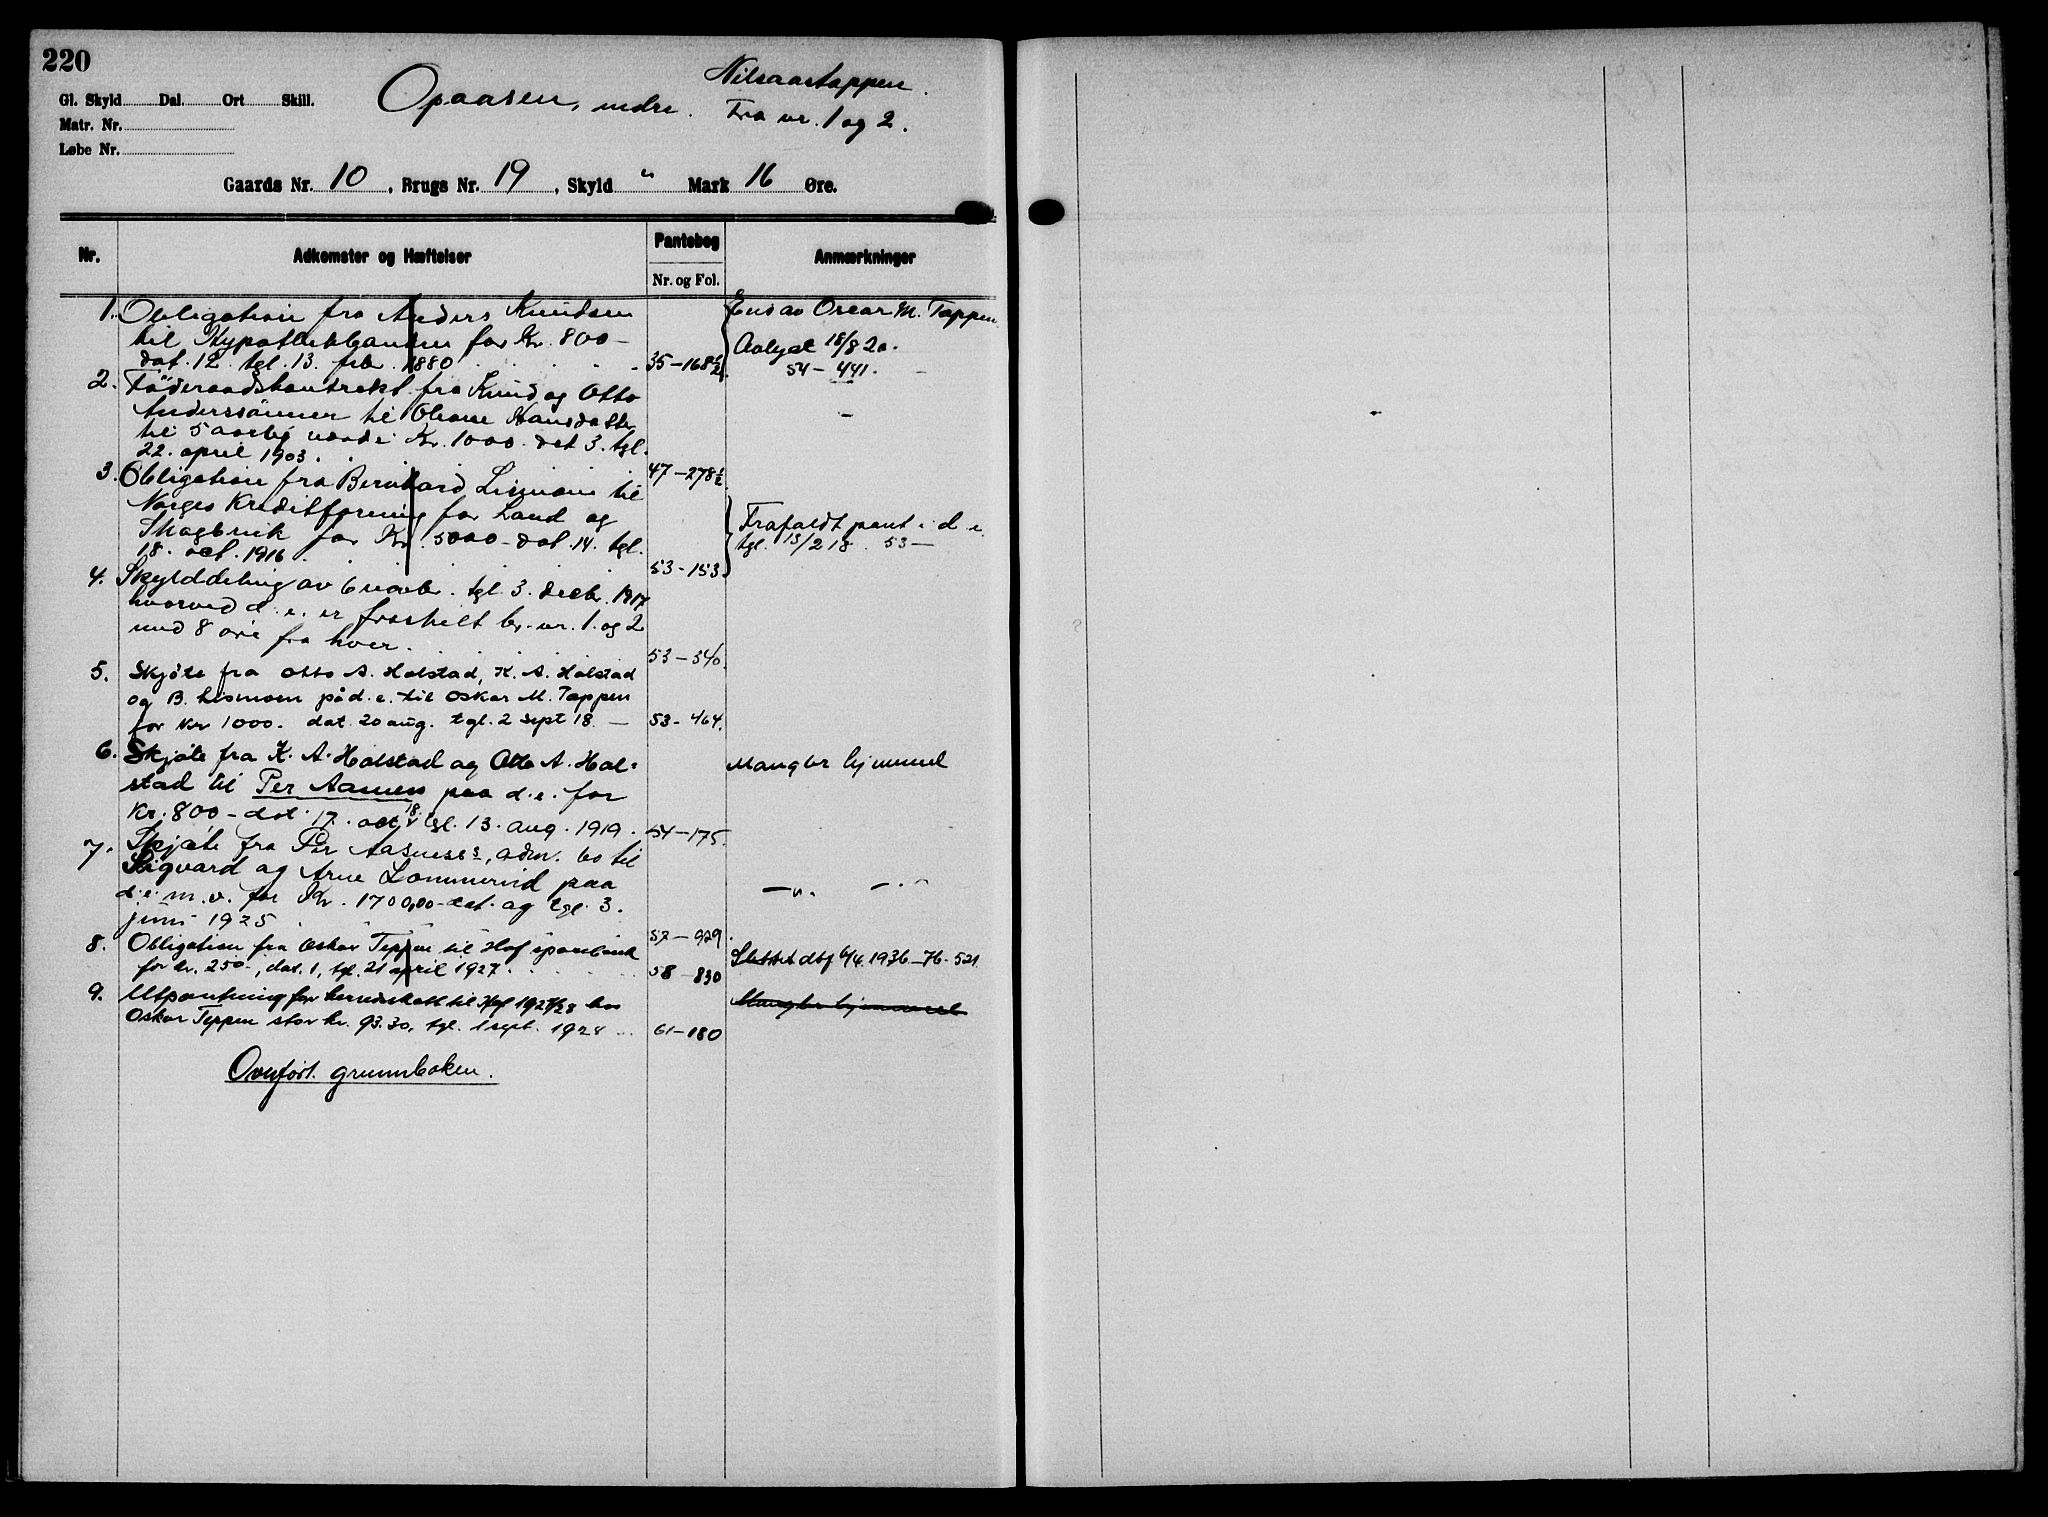 220
Gl. Skyld Dal. Ort Skill.
Matr. Nr.
Løbe Nr.
Opaasen, indre.
Nilsaastappen.
Fra nr. 1 og 2.
Gaards Nr. 10, Brugs Nr. 19, Skyld " Mark 16 Øre.
Nr. Adkomster og Hæftelser Pantebog Anmærkninger
Nr. og Fol.
1. Obligation fra Anders Knudsen
til Hypothekbanken for Kr. 800 –
dat. 12. tgl. 13. febr. 1880 35–168 1/2
Oscar M. Tappen
Avlyst 18/8 20.
54 – 441.
2. Föderaadskontrakt fra Knud og Otto
Anderssönner til Oleane Hansdatter
til 5 aarlig værdi Kr. 1000. dat 3. tgl.
22. april 1903. 47–278 1/2
3. Obligation fra Bernhard Lismoen til
Norges Kreditforening for Land og
Skogbruk for Kr. 5000 – dat. 14. tgl.
18. oct. 1916 53–153
Frafaldt pant i d. e.
tgl. 13/2 18. 53 —
4. Skylddeling av 6 novbr. tgl. 3. decbr. 1917
hvorved d. e. er fraskilt br. nr. 1. og 2
med 8 øre fra hver. 53–340.
5. Skjöte fra Otto A. Holstad, K. A. Holstad
og B. Lismoen på d. e. til Oskar M. Tappen
for Kr 1000. dat. 20 aug. tgl. 2 sept 18 — 53–464.
6. Skjøte fra K. A. Holstad og Otto A. Hol-
stad til Per Aasness paa d. e. for
Kr. 800 – dat. 17. oct. 18. tgl. 13. aug. 1919. 54–175.
Mangler hjemmel
7. Skjøte fra Per Aasness's, adm. bo til
Sigvard og Arne Lommerud paa
d. e. m. v. for Kr. 1700,00 – dat. og tgl. 3.
juni 1925 57–929.
—„— —„—
8. Obligation fra Oskar Teppen til Hof sparebank
for kr. 250 –, dat. 1, tgl. 21 april 1927. 58–830
Slettet 6/4 1936 – 76 – 521
9. Utpantning for herredsskatt til Hof 1927/28 hos
Oskar Teppen stor kr. 93.30, tgl. 1 sept. 1928 61–180
Mangler hjemmel
Overført grunnboken.